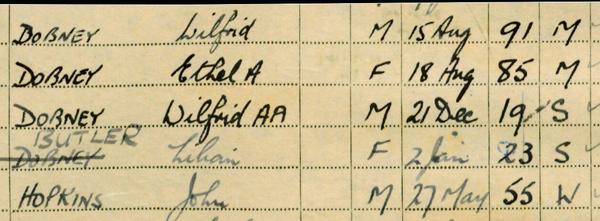 DOBNEY Wilfrid M 15 Aug 91 M
DOBNEY Ethel A F 18 Aug 85 M
DOBNEY Wilfrid AA M 21 Dec 19 S
BUTLER
DOBNEY Lilian F 2 Jan 23 S
HOPKINS John M 27 May 55 W